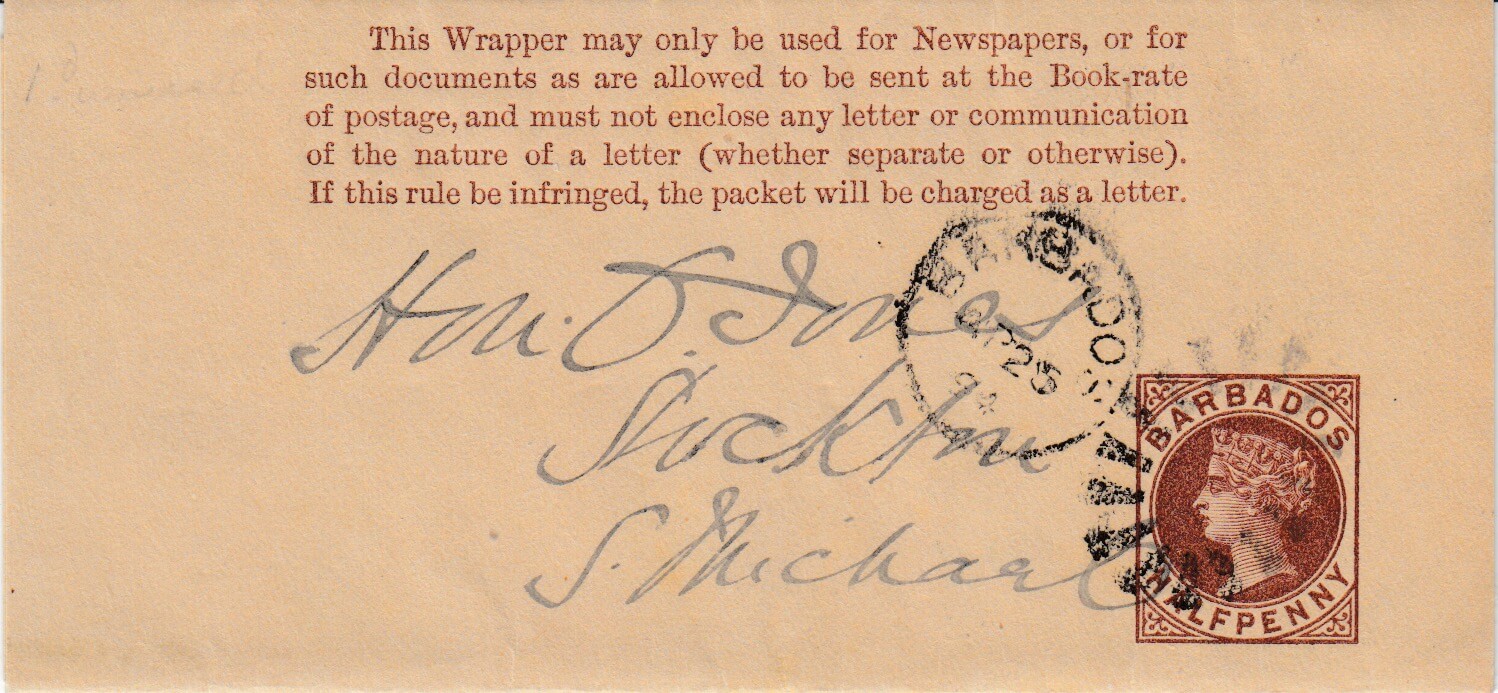 This Wrapper may only be used for Newspapers, or for
such documents as are allowed to be sent at the Book-rate
of postage, and must not enclose any letter or communication
of the nature of a letter (whether separate or otherwise).
If this rule be infringed, the packet will be charged as a letter.
Hon. Jones
Stockton
S. Michael
BARBADOS
AP 25
94
BARBADOS
HALFPENNY